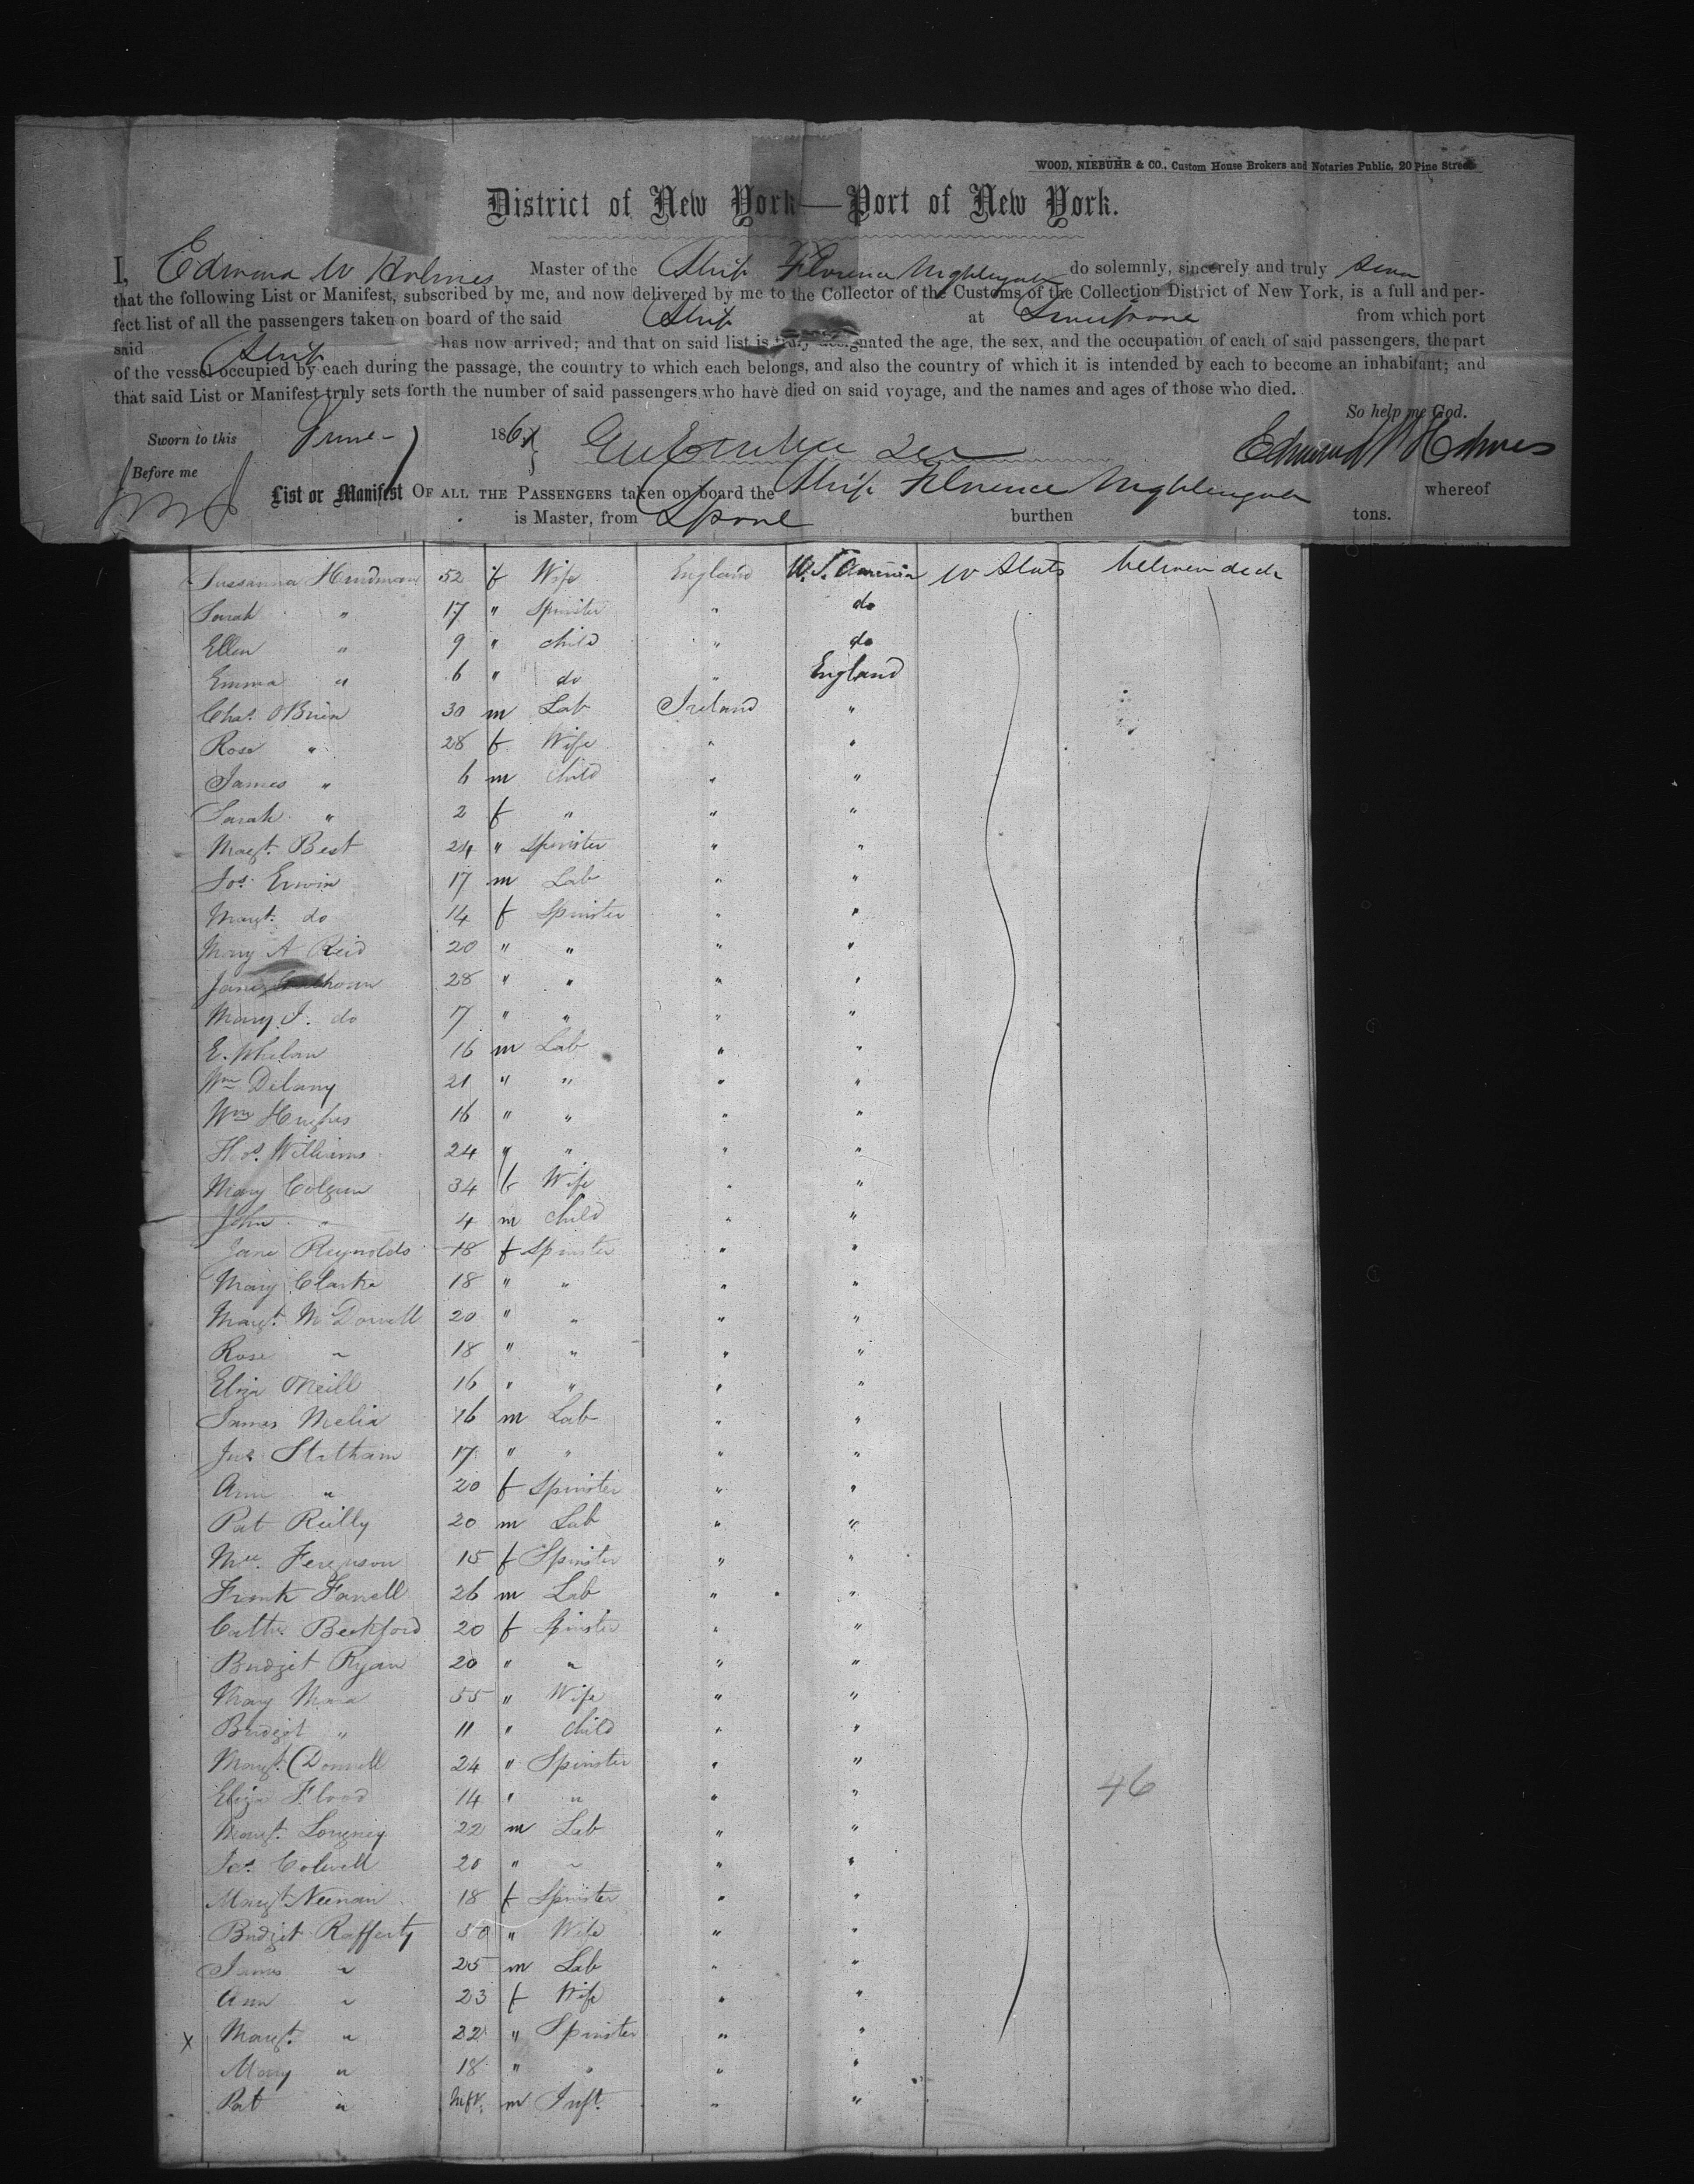 WOOD, NIEBUHR & CO., Custom House Brokers and Notaries Public, 20 Pine Street
District of New York—Port of New York.
I, Edward W Holmes Master of the Ship Florence Nightengale do solemnly, sincerely and truly swear
that the following List or Manifest, subscribed by me, and now delivered by me to the Collector of the Customs of the Collection District of New York, is a full and per-
fect list of all the passengers taken on board of the said Ship at from which port
said Ship has now arrived; and that on said list is truly designated the age, the sex, and the occupation of each of said passengers, the part
of the vessel occupied by each during the passage, the country to which each belongs, and also the country of which it is intended by each to become an inhabitant; and
that said List or Manifest truly sets forth the number of said passengers who have died on said voyage, and the names and ages of those who died.
So help me God.
Sworn to this June 186
Edward W Holmes
Before me
List or Manifest OF ALL THE PASSENGERS taken on board the Ship Florence Nightengale whereof
is Master, from Lpool burthen tons.
Sussanna Hindmarsh 52 f Wife England U.S. America between deck
Sarah " 17 " Spinster " do
Ellen " 9 " child " do
Emma " 6 " do " England
Chas. OBrien 30 m Lab Ireland "
Rose " 28 f Wife " "
James " 6 m child " "
Sarah " 2 f " " "
Margt. Best 24 " Spinster " "
Jos. Erwin 17 m Lab " "
Margt. do 14 f Spinster " "
Mary A Reid 20 " " " "
Jane 28 " " " "
Mary J. do 7 " " " "
E. Whelan 16 m Lab " "
Wm Delany 21 " " " "
Wm Hughes 16 " " " "
Thos. Williams 24 " " " "
Mary Colgan 34 f Wife " "
John " 4 m child " "
Jane Reynolds 18 f Spinster " "
Mary Clarke 18 " " " "
Margt. McDonnell 20 " " " "
Rose " 18 " " " "
Eliza ONeill 16 " " " "
James Melia 16 m Lab " "
Statham 17 " " " "
Ann " 20 f Spinster " "
Pat Reilly 20 m Lab " "
Ferguson 15 f Spinster " "
Frank Farrell 26 m Lab " "
Cathe. Beckford 20 f Spinster " "
Bridget Ryan 20 " " " "
Mary Mara 55 " Wife " "
Bridget " 11 " child " "
Margt. ODonnell 24 " Spinster " "
Eliza Flood 14 " " " "
46
Margt. 22 m Lab " "
Jas. Colwell 20 " " " "
Margt. Neenan 18 f Spinster " "
Bridget Rafferty 50 " Wife " "
James " 25 m Lab " "
Ann " 23 f Wife " "
x Margt. " 22 " Spinster " "
Mary " 18 " " " "
Pat " Inft. m Inft. " "